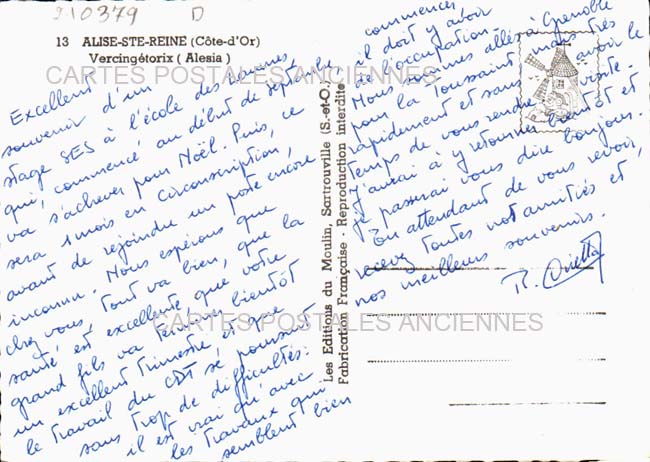 210379 D
13 ALISE-STE-REINE (Côte-d'Or)
Vercingétorix (Alesia)
CARTES POSTALES ANCIENNES
Excellent
souvenir d'un
stage SES à l'école des
qui, commencé au début de septembre
va s'achever pour Noël. Puis, ce
sera 1 mois en circonscription,
avant de rejoindre un poste encore
inconnu. Nous espérons que
chez vous tout va bien, que la
santé est excellente, que votre
grand fils va terminer bientôt
un excellent trimestre et que
le travail du CDT se poursuit
sans trop de difficultés.
il est vrai qu'avec
les travaux qui
semblent bien
commencer
il doit y avoir
de l'occupation.
Nous sommes allés à Grenoble
pour la Toussaint, mais très
rapidement et sans avoir le
temps de vous rendre visite.
J'aurai à y retourner bientôt et
je passerai vous dire bonjour.
En attendant de vous revoir,
recevez toutes nos amitiés et,
nos meilleurs souvenirs.
Les Editions du Moulin, Sartrouville (S.-et-O.)
Fabrication Française - Reproduction interdite
CARTES POSTALES ANCIENNES